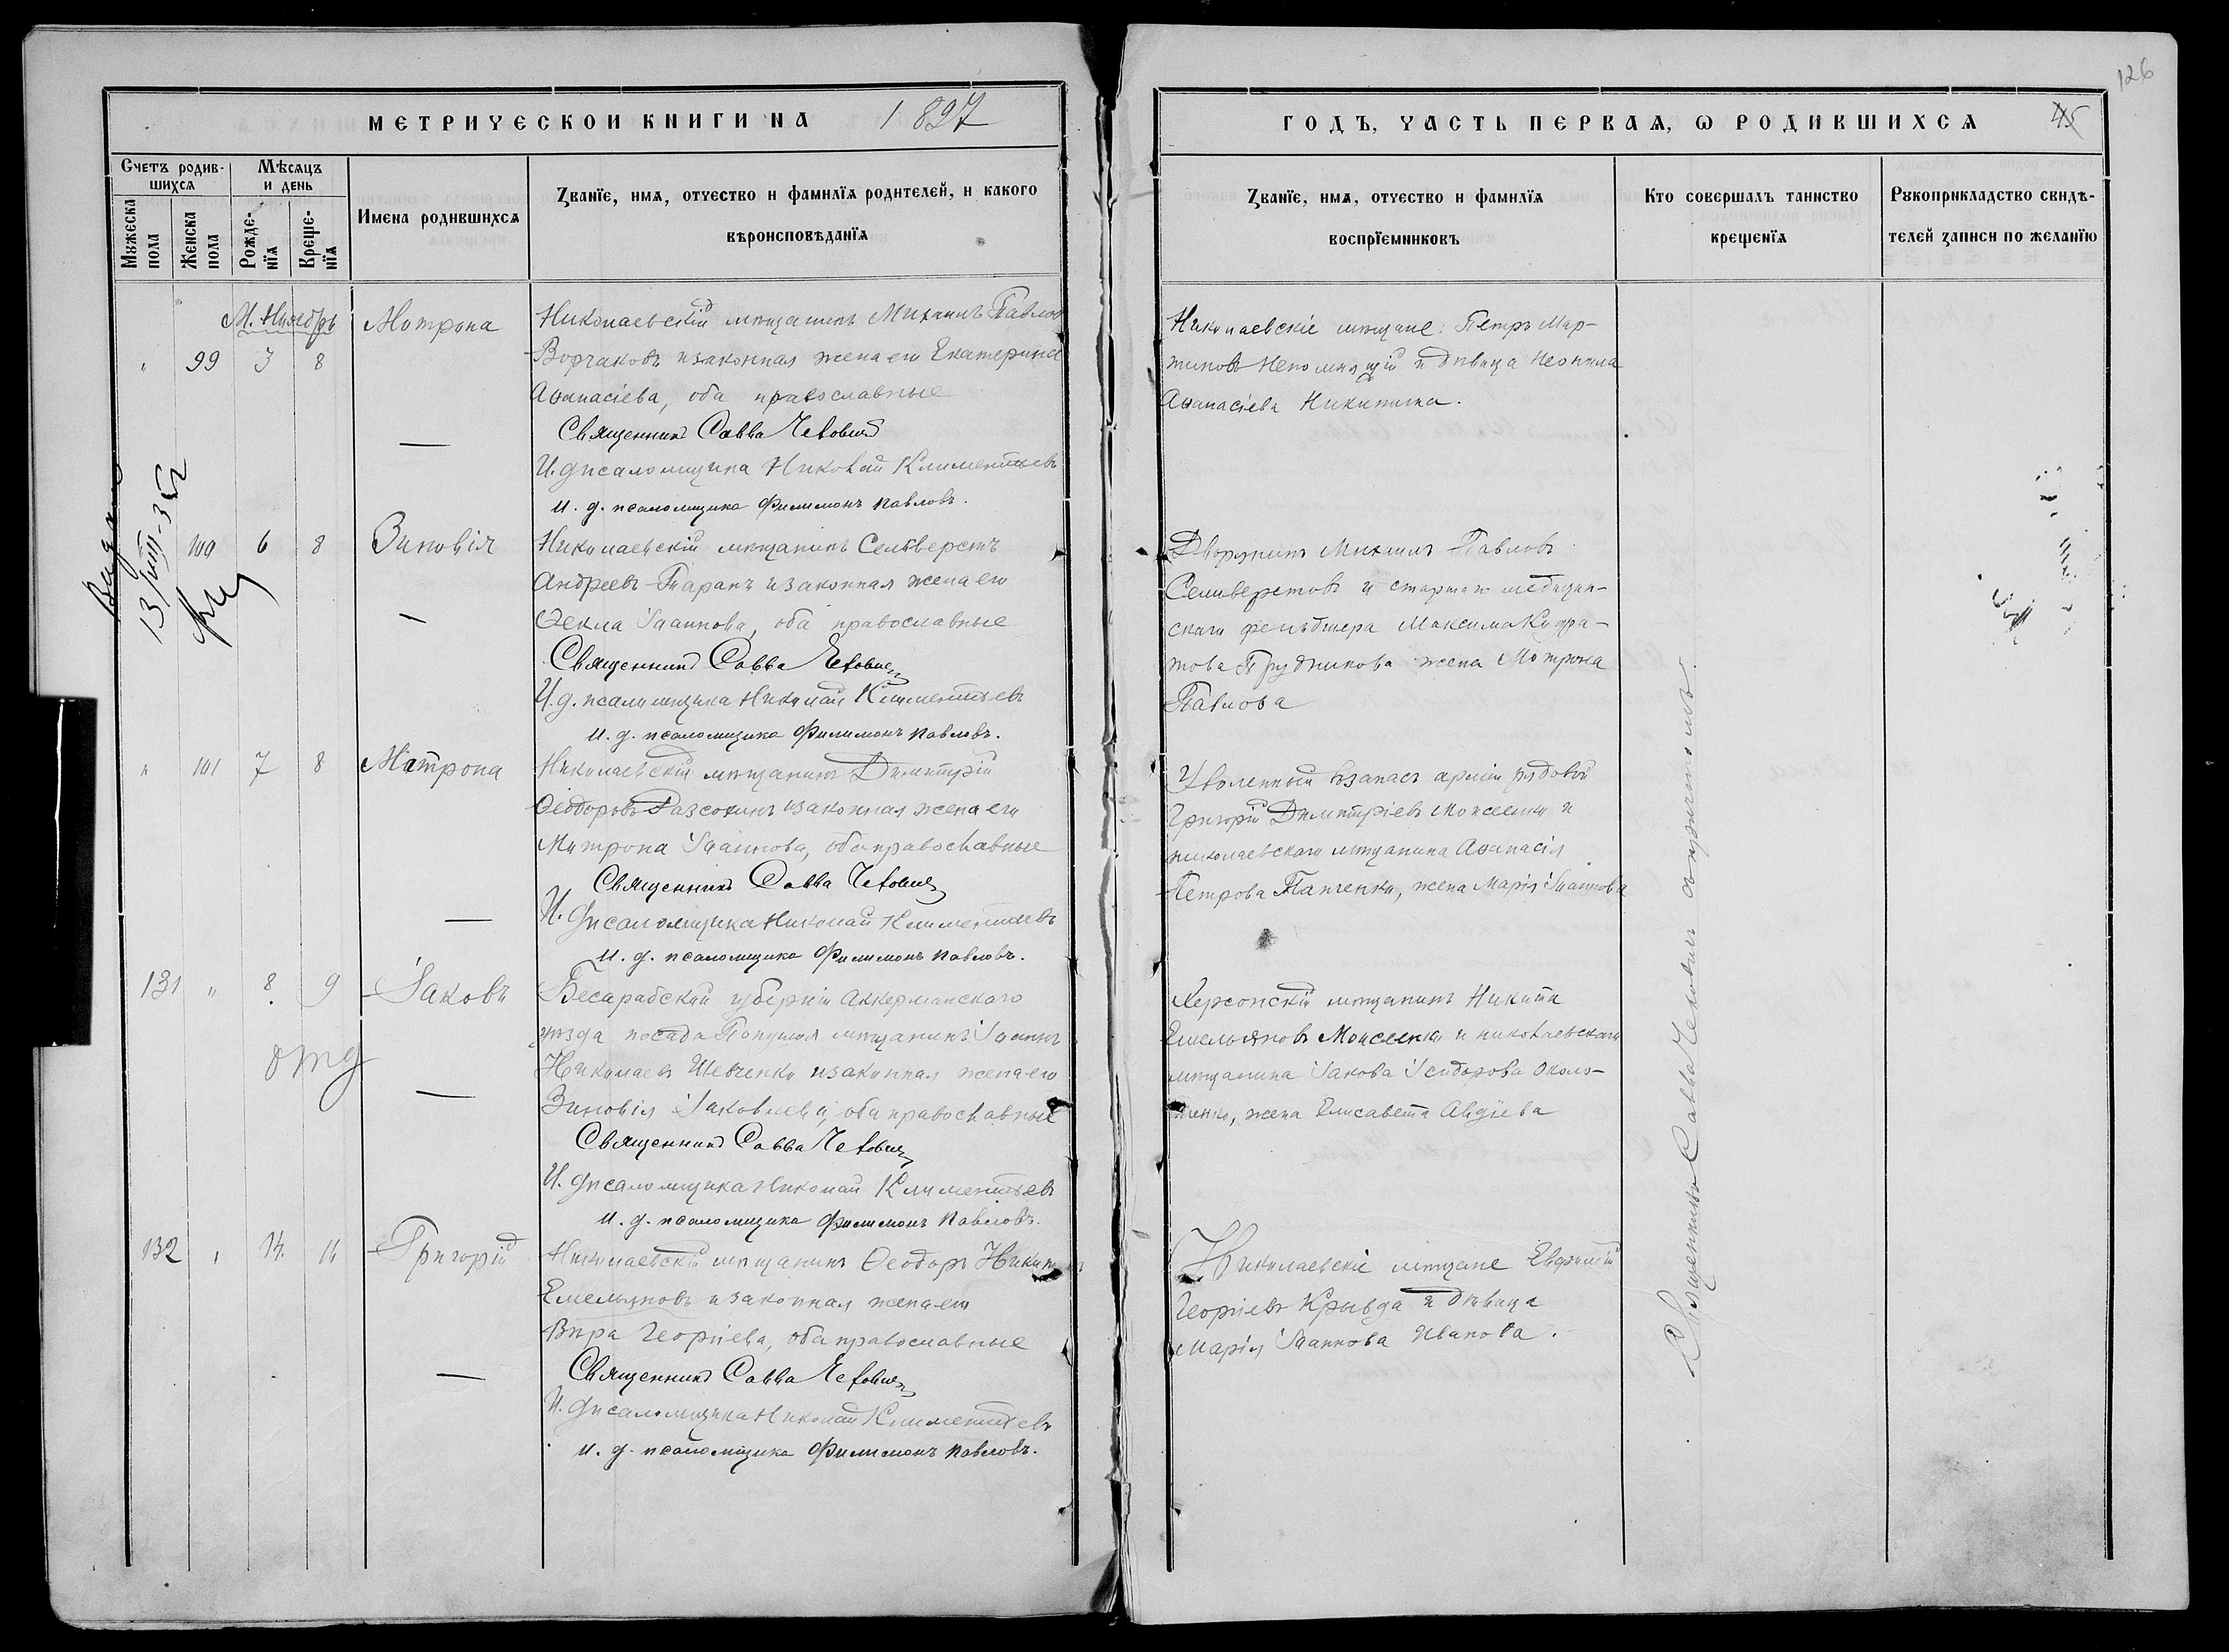 126
МЕТРИЧЕСКОЙ КНИГИ НА 1897
Счетъ родив-
шихся
Мѣсяцъ
и день
Мужеска
пола
Женска
пола
Рожде-
нїя
Креще-
нїя
Имена родившихся
Званїе, имя, отчество и фамилїя родителей, и какого
вѣроисповѣданїя
М. Ноябрь Матрона Николаевскій мѣщанинъ Михаилъ Павловъ
„ 99 7 8 Ворчаковъ и законная жена его Екатерина
Аѳанасіева, оба православные
Священникъ Савва
И. д. псаломщика Николай Климентьевъ
и. д. псаломщика Филимонъ Павловъ.
13/VIII-35
100 6 8 Зиновія Николаевскій мѣщанинъ Селиверстъ
Андреевъ Таранъ и законная жена его
Ѳекла Іоаннова, оба православные
Священникъ Савва
И. д. псаломщика Николай Климентьевъ
и. д. псаломщика Филимонъ Павловъ.
„ 101 7 8 Матрона Николаевскій мѣщанинъ Димитрій
Ѳеодоровъ Разсохинъ и законная жена его
Матрона Іоаннова, оба православные
Священникъ Савва
И. д. псаломщика Николай Климентьевъ
и. д. псаломщика Филимонъ Павловъ.
131 „ 8 9 Іаковъ Бесарабской губерніи Аккерманскаго
уѣзда посада мѣщанинъ Іоаннъ
Николаевъ Шевченко и законная жена его
Зиновія Іаковлева, оба православные
Священникъ Савва
И. д. псаломщика Николай Климентьевъ
и. д. псаломщика Филимонъ Павловъ.
132 „ 14 16 Григорій Николаевскій мѣщанинъ Ѳеодоръ
Емельяновъ и законная жена его
Вѣра Георгіева, оба православные
Священникъ Савва
И. д. псаломщика Николай Климентьевъ
и. д. псаломщика Филимонъ Павловъ.
ГОДЪ, ЧАСТЬ ПЕРВАЯ, Ѡ РОДИВШИХСЯ 45
Званїе, имя, отчество и фамилїя
воспрїемниковъ
Кто совершалъ таинство
крещенїя
Рукоприкладство свидѣ-
телей записи по желанїю
Николаевскіе мѣщане: Петръ Мар-
тиновъ Непомнящій и дѣвица Неонила
Аѳанасіева Никитина.
Дворянинъ Михаилъ Павловъ
Селиверстовъ и старшаго медицин-
скаго фельдшера Максима Кодра-
това Прудникова жена Матрона
Павлова
Уволенный въ запасъ арміи рядовой
Григорій Димитріевъ Моисеенко и
николаевскаго мѣщанина Аѳанасія
Петрова Танченко, жена Марія Іоаннова
Херсонскій мѣщанинъ Никита
Емельяновъ Моисеенко и николаевскаго
мѣщанина Іакова Ісидорова Около-
жена Елисавета Авдіева
Николаевскіе мѣщане Евфимій
Георгіевъ Крывда и дѣвица
Марія Іоаннова Иванова.
Священникъ Савва